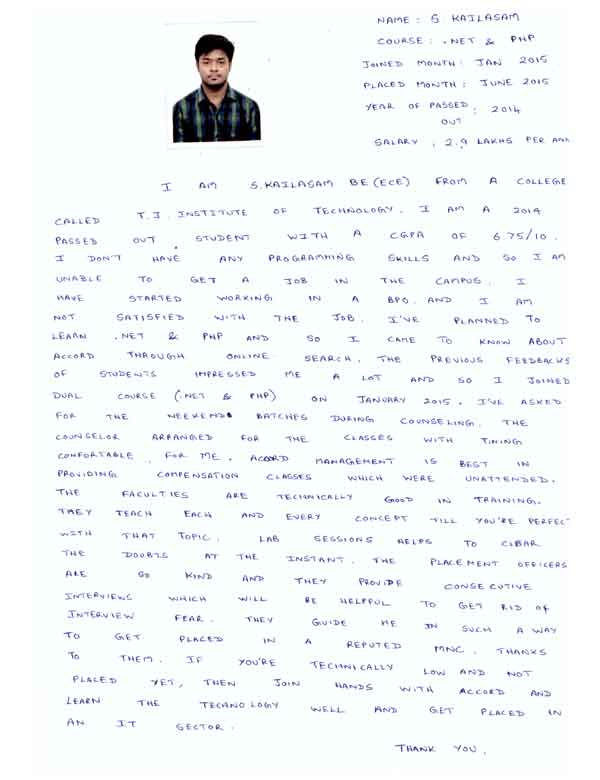 NAME : S KAILASAM
COURSE : .NET & PHP
JOINED MONTH : JAN 2015
PLACED MONTH : JUNE 2015
YEAR OF PASSED OUT : 2014
SALARY : 2.9 LAKHS PER ANN
I AM S.KAILASAM BE (ECE) FROM A COLLEGE
CALLED T.J. INSTITUTE OF TECHNOLOGY. I AM A 2014
PASSED OUT STUDENT WITH A CGPA OF 6.75/10.
I DON'T HAVE ANY PROGRAMMING SKILLS AND SO I AM
UNABLE TO GET A JOB IN THE CAMPUS. I
HAVE STARTED WORKING IN A BPO. AND I AM
NOT SATISFIED WITH THE JOB. I'VE PLANNED TO
LEARN .NET & PHP AND SO I CAME TO KNOW ABOUT
ACCORD THROUGH ONLINE SEARCH. THE PREVIOUS FEEDBACKS
OF STUDENTS IMPRESSED ME A LOT AND SO I JOINED
DUAL COURSE (.NET & PHP) ON JANUARY 2015. I'VE ASKED
FOR THE WEEKENDS BATCHES DURING COUNSELING. THE
COUNSELOR ARRANGED FOR THE CLASSES WITH TIMING
COMFORTABLE FOR ME. ACCORD MANAGEMENT IS BEST IN
PROVIDING COMPENSATION CLASSES WHICH WERE UNATTENDED.
THE FACULTIES ARE TECHNICALLY GOOD IN TRAINING.
THEY TEACH EACH AND EVERY CONCEPT TILL YOU'RE PERFECT
WITH THAT TOPIC. LAB SESSIONS HELPS TO CLEAR
THE DOUBTS AT THE INSTANT. THE PLACEMENT OFFICERS
ARE SO KIND AND THEY PROVIDE CONSECUTIVE
INTERVIEWS WHICH WILL BE HELPFUL TO GET RID OF
INTERVIEW FEAR. THEY GUIDE ME IN SUCH A WAY
TO GET PLACED IN A REPUTED MNC. THANKS
TO THEM. IF YOU'RE TECHNICALLY LOW AND NOT
PLACED YET, THEN JOIN HANDS WITH ACCORD AND
LEARN THE TECHNOLOGY WELL AND GET PLACED IN
AN IT SECTOR.
THANK YOU.